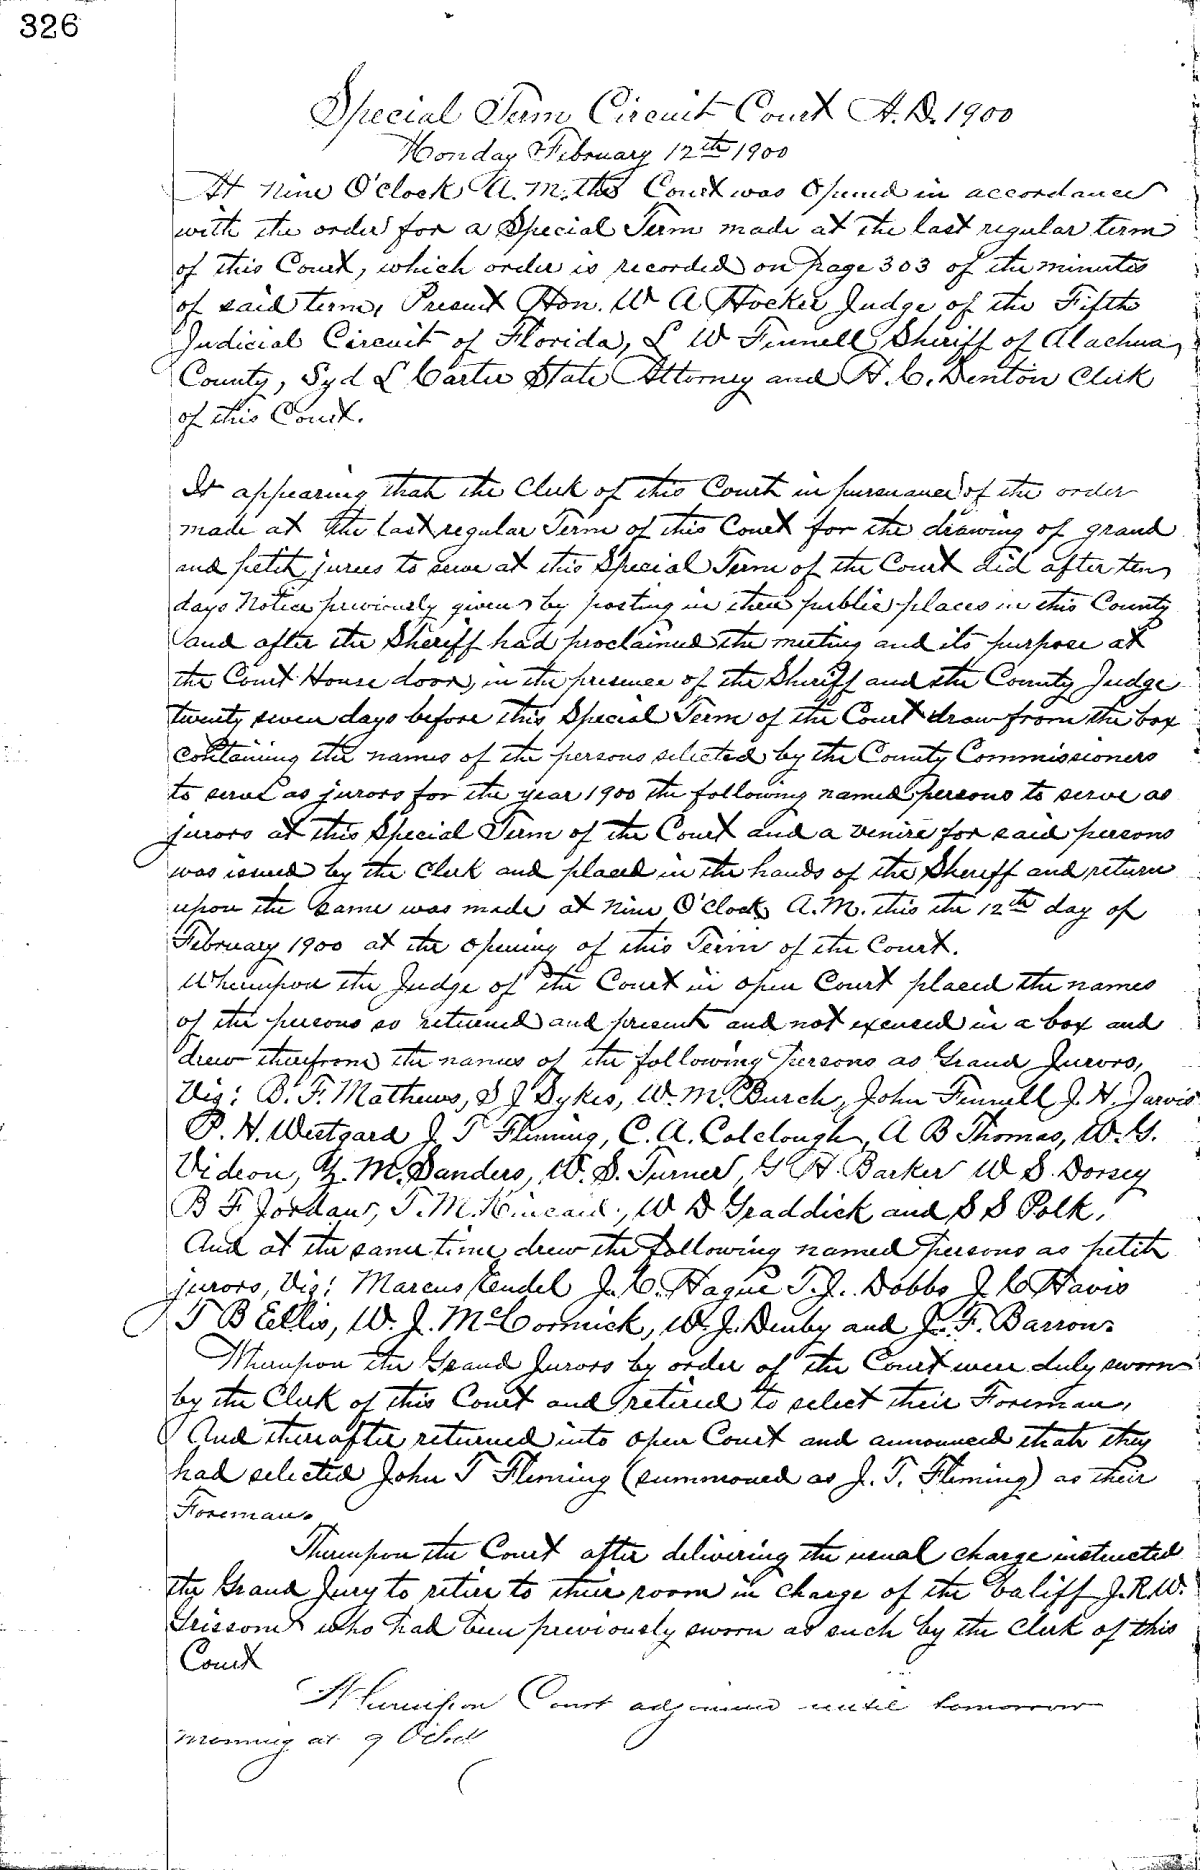 326
Special Term Circuit Court A.D. 1900
Monday February 12th 1900
At Nine O'Clock A.M. the Court was Opened in accordance
with the order for a Special Term made at the last regular term
of this Court, which order is recorded on page 303 of the minutes
of said term, Present Hon. W A Hocker Judge of the Fifth
Judicial Circuit of Florida, L W Fennell Sheriff of Alachua
County, Syd L Carter State Attorney and H. C. Denton Clerk
of this Court.
It appearing that the Clerk of this Court in pursuance of the order
made at the last regular Term of this Court for the drawing of grand
and petit jurees to serve at this Special Term of the Court did after ten
days Notice previously given by posting in three public places in this County
and after the Sheriff had proclaimed the meeting and its purpose at
the Court House door, in the presence of the Sheriff and the County Judge
twenty seven days before this Special Term of the Court draw from the box
containing the names of the persons selected by the County Commissioners
to serve as jurors for the year 1900 the following named persons to serve as
jurors at this Special Term of the Court and a venire for said persons
was issued by the Clerk and placed in the hands of the Sheriff and return
upon the same was made at Nine O'Clock A.M. this the 12th day of
February 1900 at the opening of this Term of the Court.
Whereupon the Judge of the Court in open Court placed the names
of the persons so returned and present and not excused in a box and
drew therefrom the names of the following persons as Grand Jurors,
Viz: B. F. Mathews, S J Dykes, W. M. Burch, John Fennell J. H. Jarvis
P. H. Westgard J T Fleming, C. A. Colclough, A B Thomas, W. G.
Videon, M. Sanders, W. S. Turner, G H Barker W S. Dorsey
B F Jordan, T. M. Kincaid, W D Graddick and S S Polk.
And at the same time drew the following named persons as petit
jurors, Viz: Marcus Endel J. C. Hague T. J. Dobbs J C Havis
T B Ellis, W. J. McCormick, W. J. Denby and J. F. Barron.
Whereupon the Grand Jurors by order of the Court were duly sworn
by the Clerk of this Court and retired to select their Foreman,
And thereafter returned into open Court and announced that they
had selected John T Fleming (summoned as J. T. Fleming) as their
Foreman.
Thereupon the Court after delivering the usual charge instructed
the Grand Jury to retire to their room in charge of the baliff J. R. W.
Grissom who had been previously sworn as such by the Clerk of this
Court
Whereupon Court adjourned until tomorrow
morning at 9 Oclock